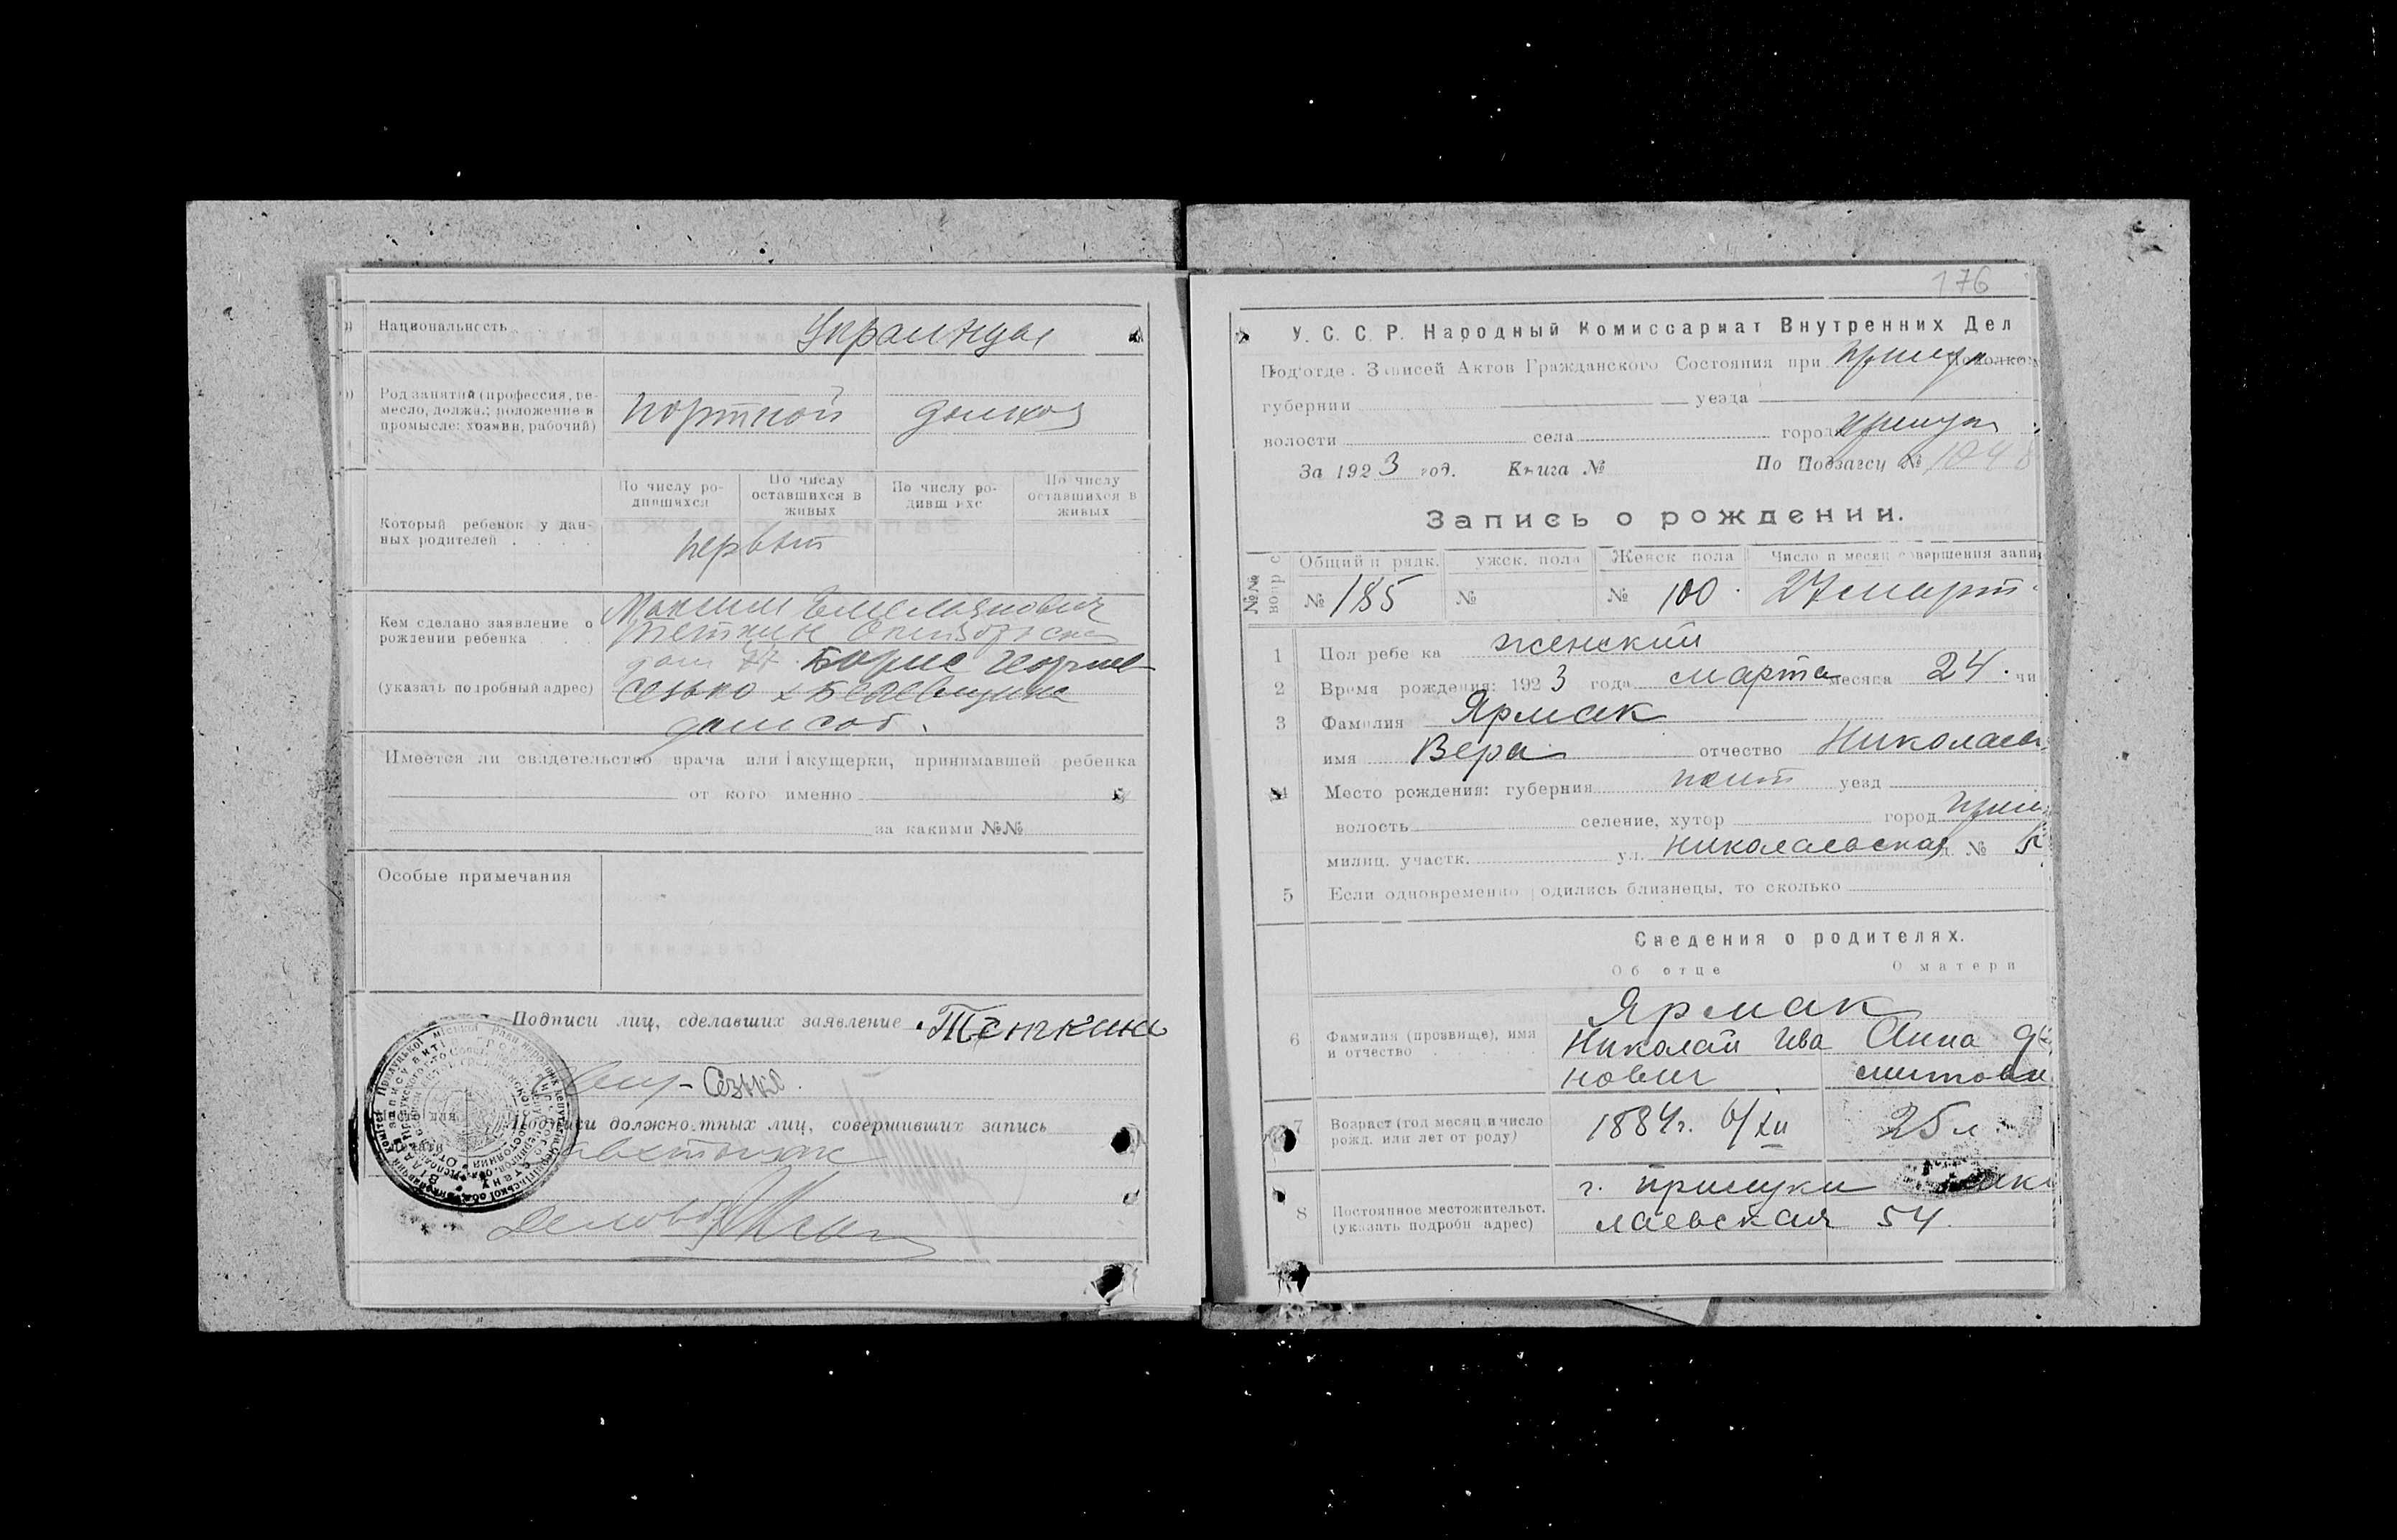 Национальность
Украинцы
Род занятий (профессия, ре-
месло, должн.; положение в
промысле: хозяин, рабочий)
портной домхоз
По числу ро-
дившихся
По числу
оставшихся в
живых
По числу ро-
дивш ихс
По числу
оставшихся в
живых
Который ребенок у дан-
ных родителей . . . .
первый
Кем сделано заявление о
рождении ребенка . . .
(указать подробный адрес)
Максим Емельянович
дом 77 Борис Георгиев
Сезько х Белевщина
дом соб.
Имеется ли свидетельство врача или акушерки, принимавшей ребенка
от кого именно
за какими №№
Особые примечания
Подписи лиц, сделавших заявление
Сезько
Подписи должностных лиц, совершивших запись
176
У. С. С. Р. Народный Комиссариат Внутренних Дел
Под'отде. Записей Актов Гражданского Состояния при Прилук Исполко
губернии уезда
волости села город Прилуки
За 1923 год. Книга № По Подзагсу №
Запись о рождении.
№№ вопр с
Общий п рядк. ужск. пола Женск пола Число и месяц совершения запи
№ 185 № № 100. 27 март
1 Пол ребе ка женский
2 Время рождения: 1923 года марта месяца 24. чи
3 Фамилия Ярмак
имя Вера отчество Николаев
4 Место рождения: губерния полт уезд
волость селение, хутор город Прил
милиц. участк. ул. Николаевская д. № 5
5 Если одновременно родились близнецы, то сколько
Сведения о родителях.
Об отце О матери
6 Фамилия (прозвище), имя
и отчество
Ярмак
Николай Ива Анна Д
нович
7 Возраст (год месяц и число
рожд. или лет от роду)
1884г. 6/XII 25 л.
8 Постоянное местожительст.
(указать подробн адрес)
г. Прилуки Нико
лаевская 54.